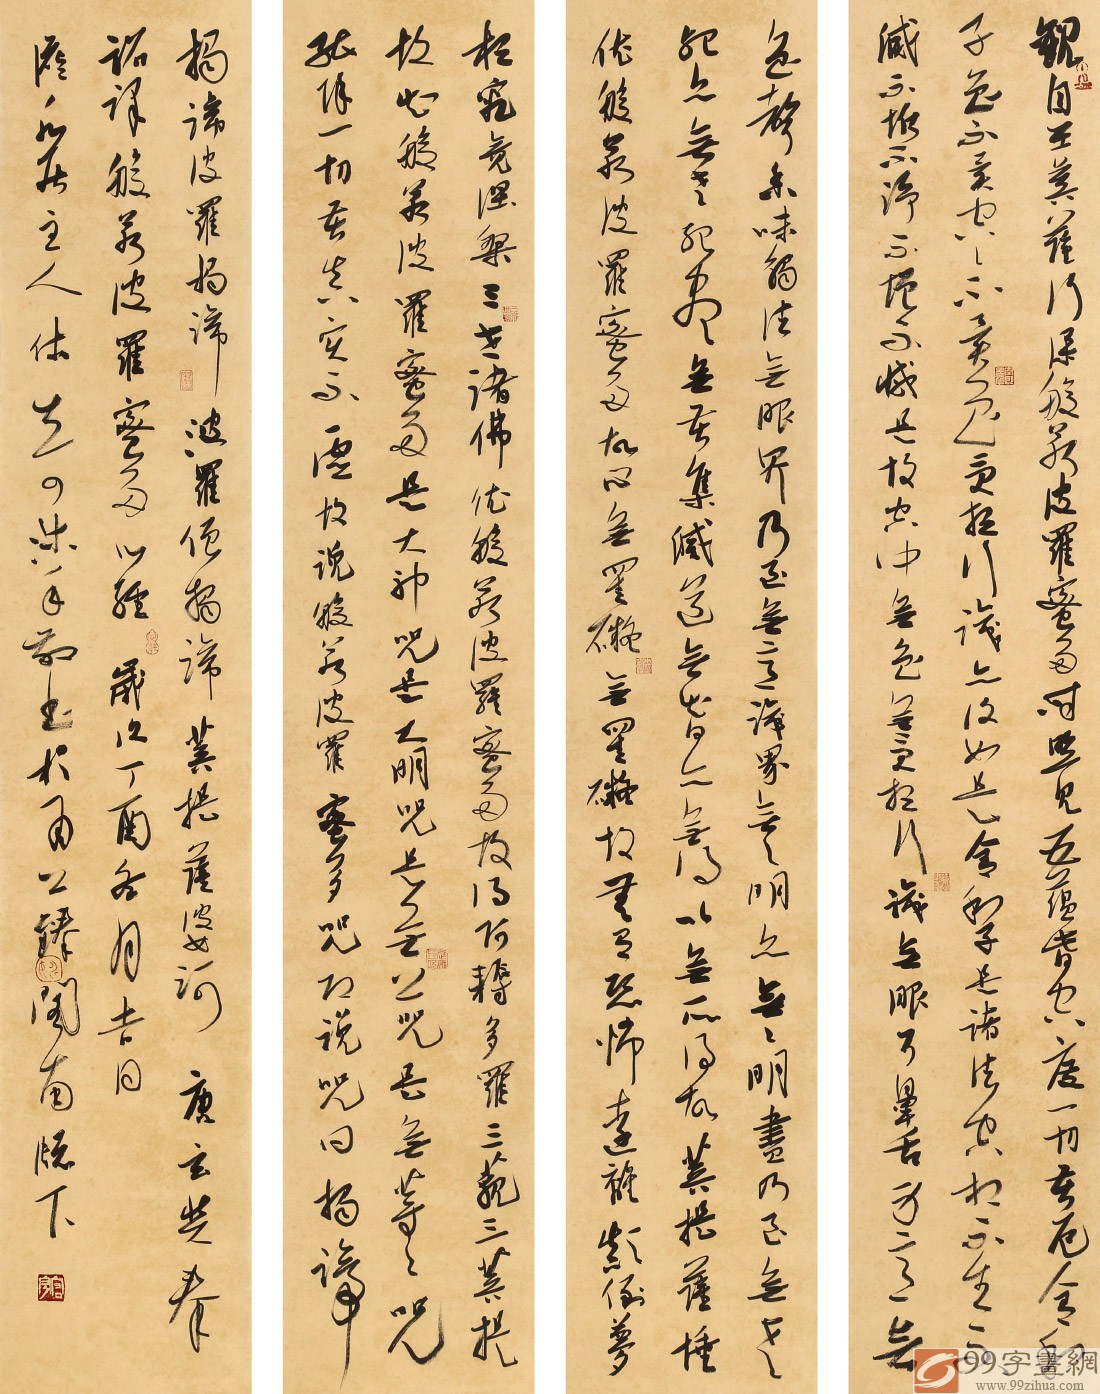 觀自在菩薩行深般若波羅蜜多時照見五蘊皆空度一切苦厄舍利
子色不異空空不異色色受想行識亦復如是舍利子是諸法空相不生不
滅不垢不淨不增不減是故空中無色無受想行識無眼耳鼻舌身意無
色聲香味觸法無眼界乃至無意識界無無明亦無無明盡乃至無老
死亦無老死盡無苦集滅道無智亦無得以無所得故菩提薩埵
依般若波羅蜜多故心無罣礙無罣礙故無有恐怖遠離顛倒夢
想究竟涅槃三世諸佛依般若波羅蜜多故得阿耨多羅三藐三菩提
故知般若波羅蜜多是大神咒是大明咒是無上咒是無等等咒
能除一切苦真實不虛故說般若波羅蜜多咒即說咒曰揭諦
揭諦波羅揭諦波羅僧揭諦菩提薩婆訶 唐玄奘奉
詔譯般若波羅蜜多心經 歲次丁酉冬月吉日
主人 書於 閩南 下
99字畫網
www.99zihua.com